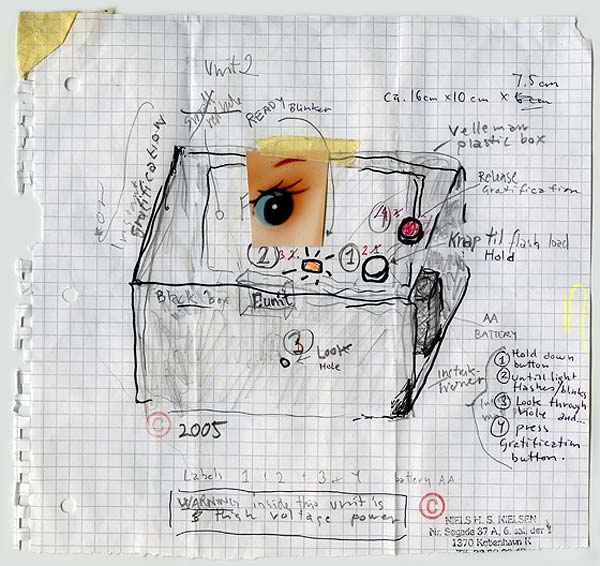 Unit 2
7.5 cm
ca. 16cm x 10 cm x 6cm
READY Blinker
Velleman
plastic box
Instant
Gratification
Release
Gratification
4
Knap til flash load
Hold
2 3 x
1 2 x
Black box
Eunit
3
Look
Hole
AA
BATTERY
1 Hold down
button
2 Untill light
flashes/blinks
3 Look through
Hole and...
4 press
Gratification
button.
© 2005
Labels 1 + 2 + 3 + 4 battery AA
WARNING inside this unit is
high voltage power
©
NIELS H. S. NIELSEN
Nr. Søgade 37 A, 6.
1370 København K